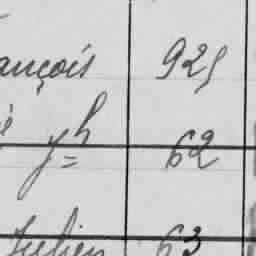 ançois 925
yh 62
Julien 63